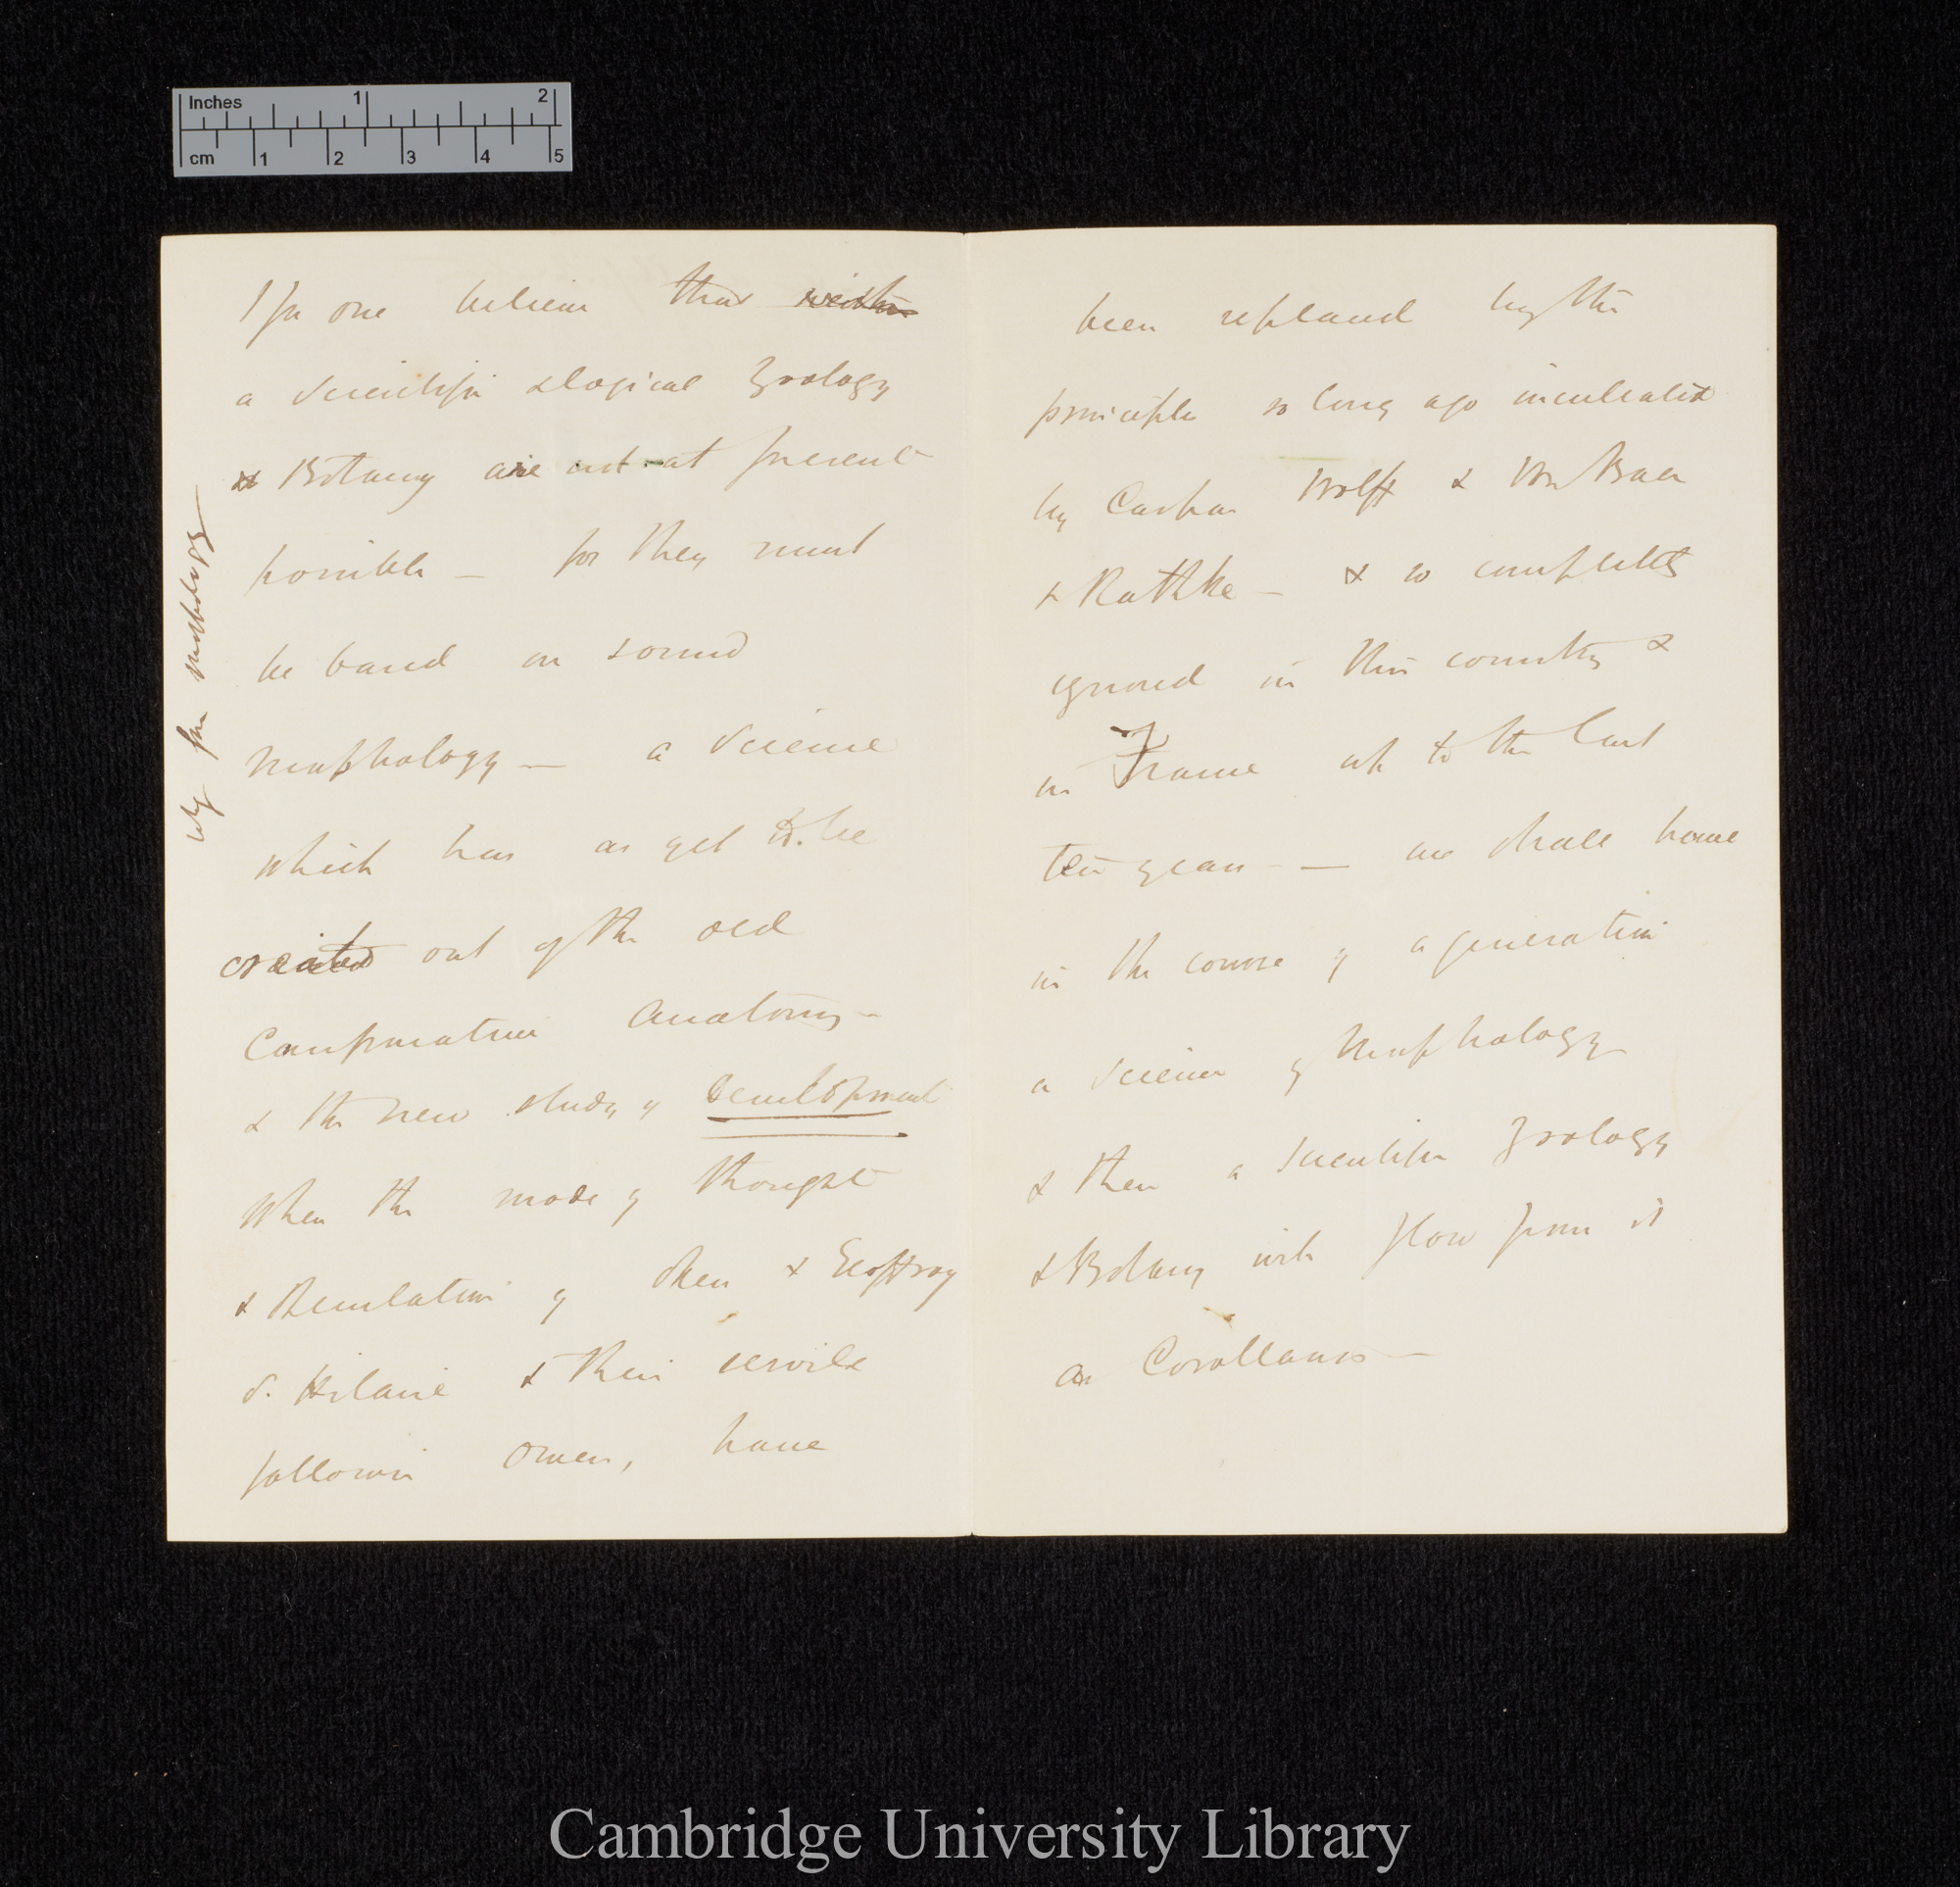 Inches 1 2
cm 1 2 3 4 5
I for one believe that neither
a Scientific & logical Zoology
& Botany are not at present
possible — for they must
be based on sound
Morphology — a Science
which has as yet to be
created out of the old
Comparative Anatomy —
& the new study of Development
When the mode of thought
& speculation of Oken & Geoffroy
S. Hilaire & their servile
follower Owen, have
why for morphology
been replaced by the
principles so long ago inculcated
by Caspar Wolff & Von Baer
& Rathke — & so completely
ignored in this country &
in France up to the last
ten years — we shall have
in the course of a generation
a science of Morphology
& then a Scientific Zoology
& Botany will flow from it
as Corollaries —
Cambridge University Library